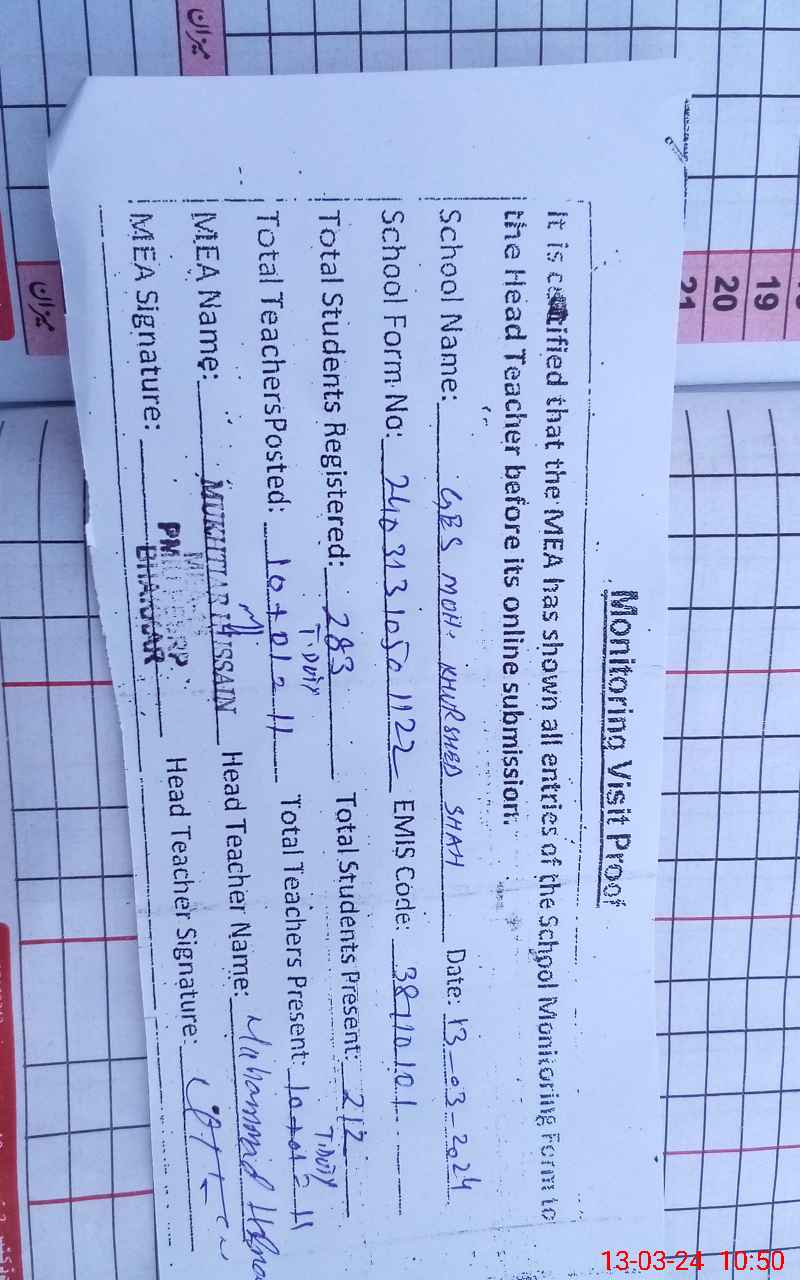 Monitoring Visit Proof
It is certified that the MEA has shown all entries of the School Monitoring Form to
the Head Teacher before its online submission.
School Name: GES MOH: KHURSHED SHAH Date: 13-03-2024
School Form No: 24031310501122 EMIS Code: 38710101
Total Students Registered: 283 Total Students Present: 212
T.DUTY T.DUTY
Total Teachers Posted: 10+01=11 Total Teachers Present: 10+01=11
MEA Name: MUKHTIAR HUSSAIN Head Teacher Name: Muhammad
MEA Signature: BHAKKAR Head Teacher Signature:
میزان
میزان
19
20
21
13-03-24 10:50